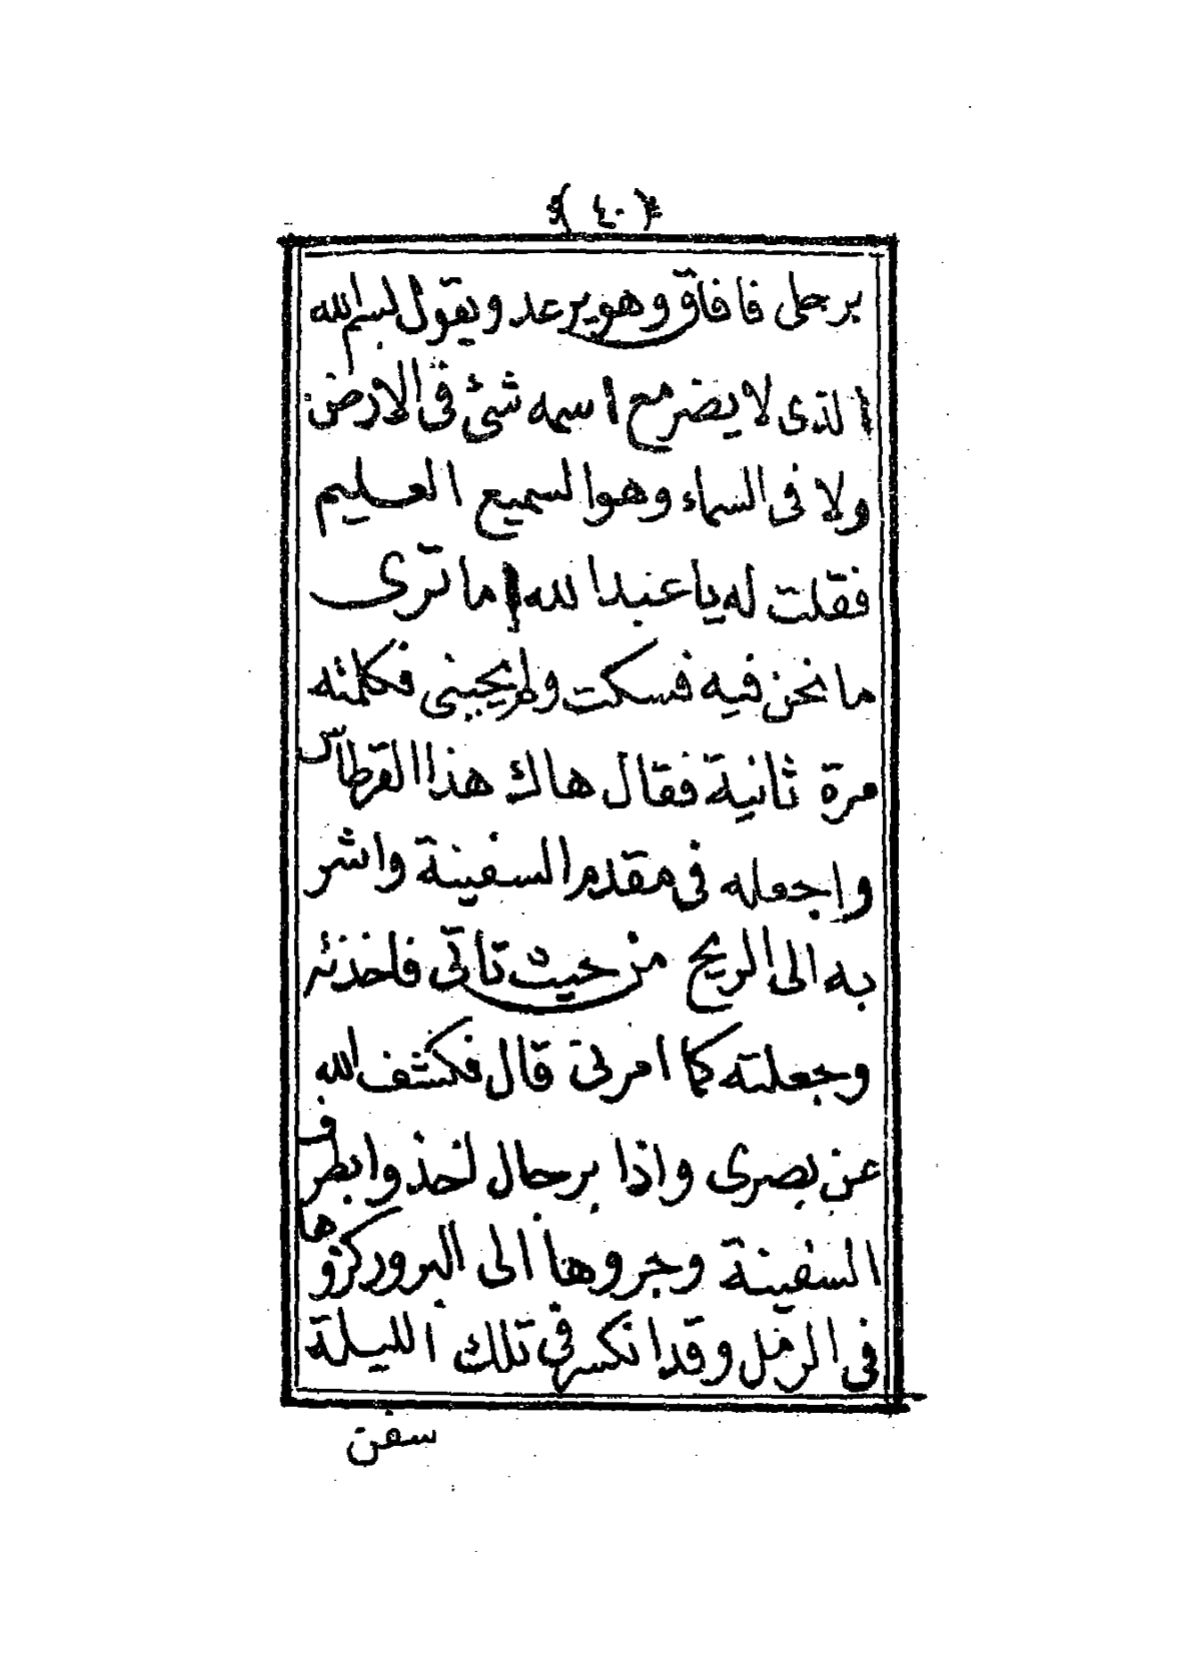 ﴿ ٤٠ ﴾
برجلى فافاق وهو يرعد ويقول بسم الله
الذى لا يضر مع اسمه شئ فى الارض
ولا فى السماء وهو السميع العليم
فقلت له يا عبد الله اما ترى
ما نحن فيه فسكت ولم يجيبنى فكلمته
مرة ثانية فقال هاك هذا القرطاس
واجعله فى مقدم السفينة واشر
به الى الريح من حيث تاتى فاخذته
وجعلته كما امرنى قال فكشف الله
عن بصرى واذا برجال اخذوا بطرف
السفينة وجروها الى البر وركزوها
فى الرمل وقد انكسر فى تلك الليلة
سفن